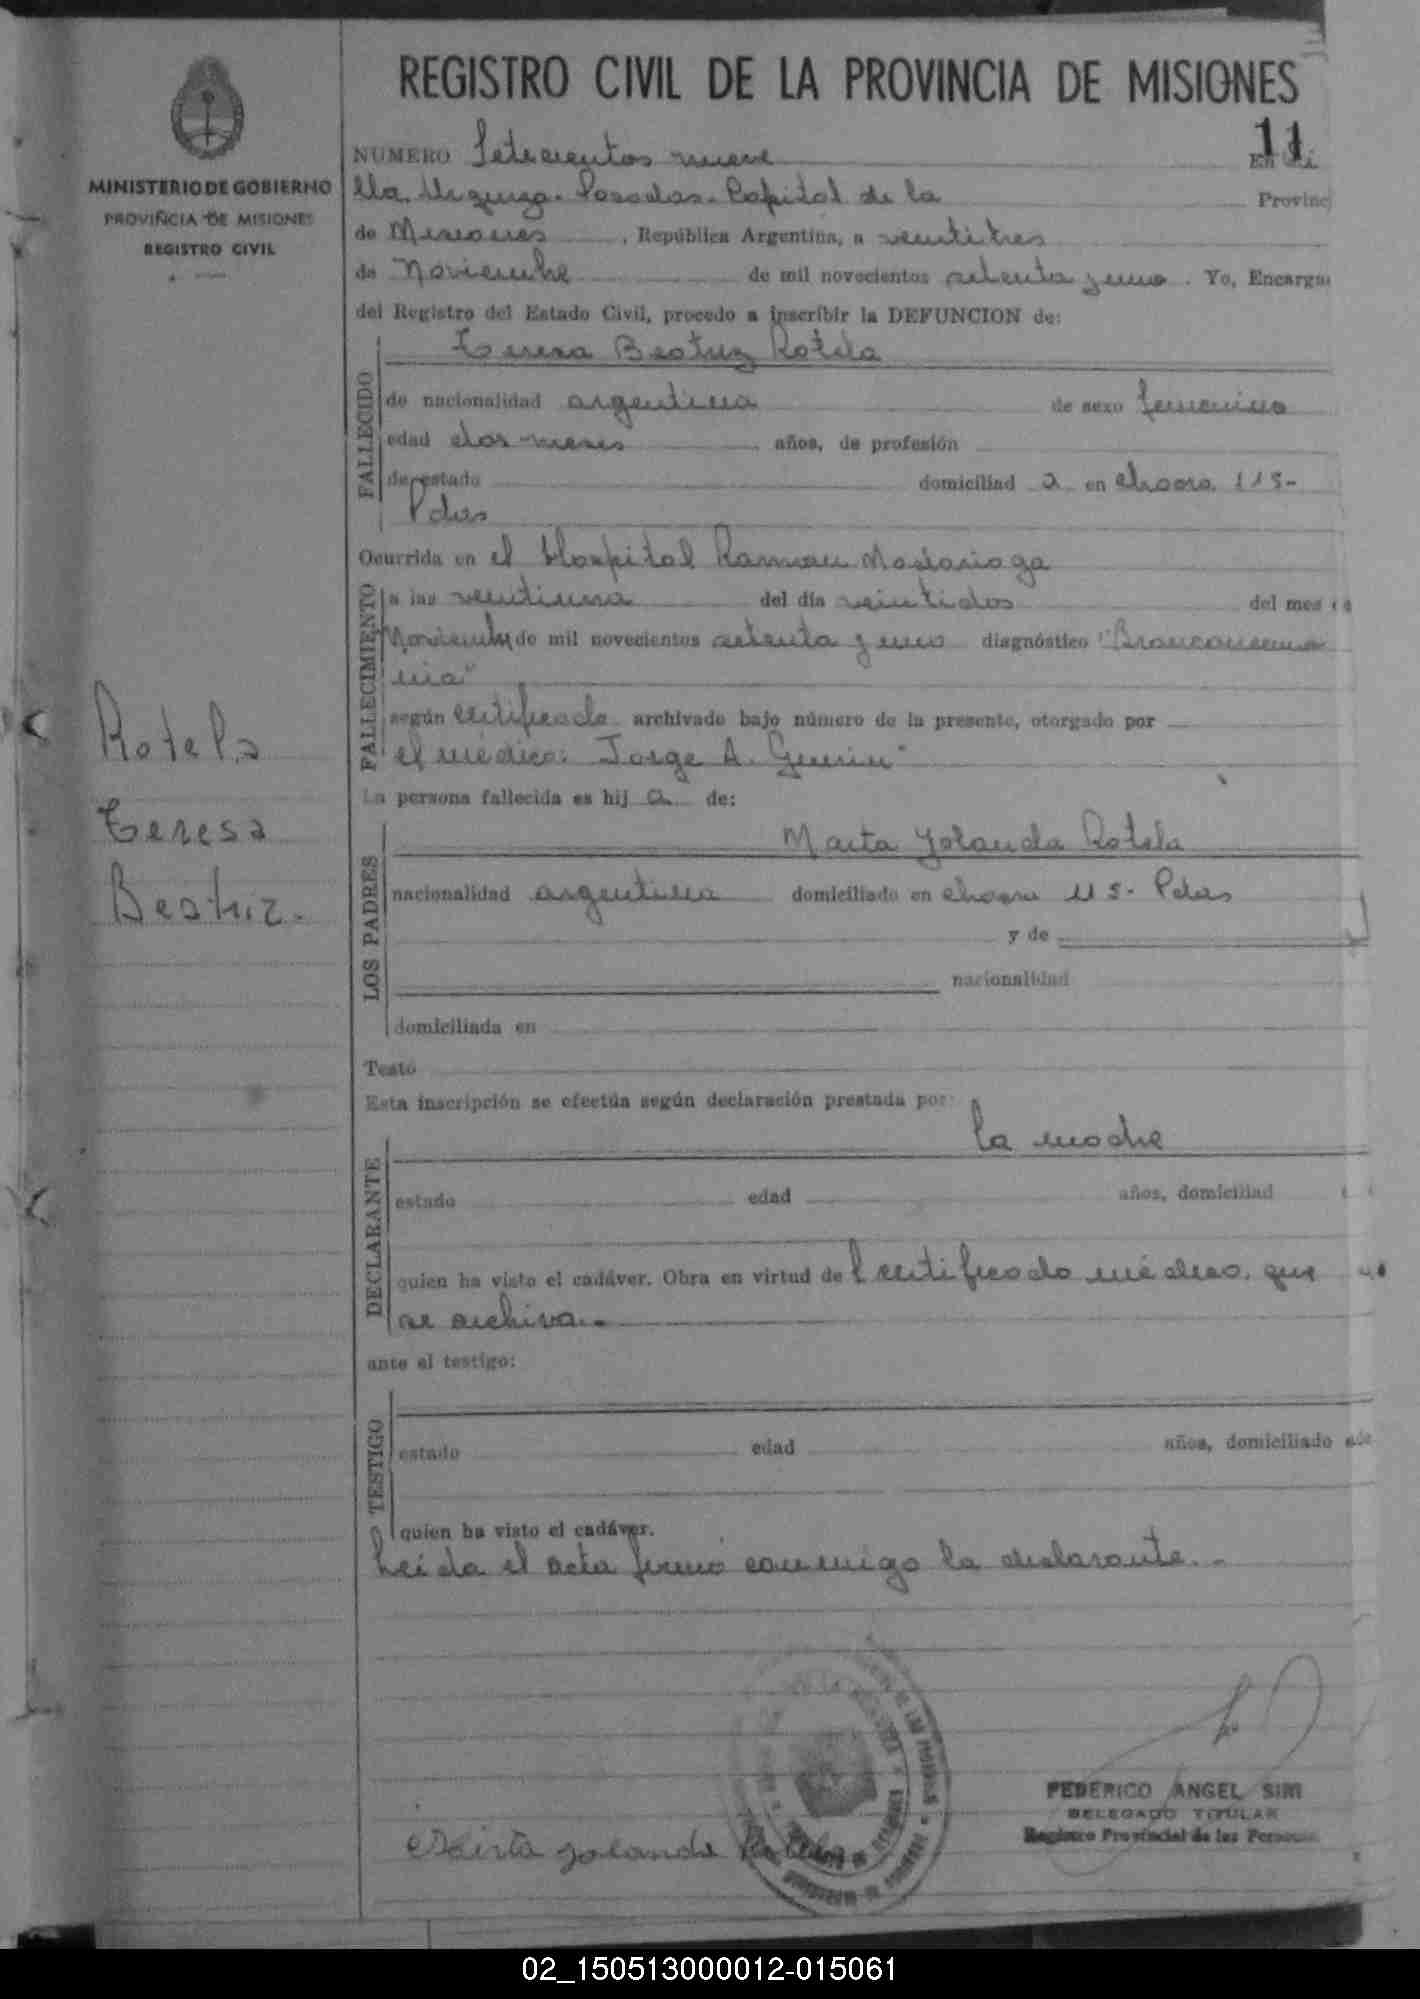 REGISTRO CIVIL DE LA PROVINCIA DE MISIONES
MINISTERIO DE GOBIERNO
PROVINCIA DE MISIONES
REGISTRO CIVIL
11
NUMERO Setecientos nueve En Vi
lla Urquiza - Posadas - Capital de la Provinc
de Misiones, República Argentina, a veintitres
de Noviembre de mil novecientos setenta y uno. Yo, Encarga
del Registro del Estado Civil, procedo a inscribir la DEFUNCION de:
Teresa Beatriz Rotela
FALLECIDO
de nacionalidad argentina de sexo femenino
edad dos meses años, de profesión
de estado domiciliad a en chacra 115-
Pdas
Ocurrida en el Hospital Ramon Madariaga
FALLECIMIENTO
a las veintiuna del día veintidos del mes de
Noviembre de mil novecientos setenta y uno diagnóstico "Bronconeumo
nia"
según certificado archivado bajo número de la presente, otorgado por
el médico: Jorge A.
La persona fallecida es hij a de:
Rotela
Teresa
Beatriz.
LOS PADRES
Mirta Yolanda Rotela
nacionalidad argentina domiciliado en chacra 115- Pdas
y de
nacionalidad
domiciliada en
Testó
Esta inscripción se efectúa según declaración prestada por:
la madre
DECLARANTE
estado edad años, domiciliad
quien ha visto el cadáver. Obra en virtud del certificado médico que
se archiva.-
ante el testigo:
TESTIGO
estado edad años, domiciliado
quien ha visto el cadáver.
Leída el acta firmó conmigo la declarante.-
Mirta Yolanda Rotela
FEDERICO ANGEL SIRI
DELEGADO TITULAR
Registro Provincial de las Personas
02_150513000012-015061